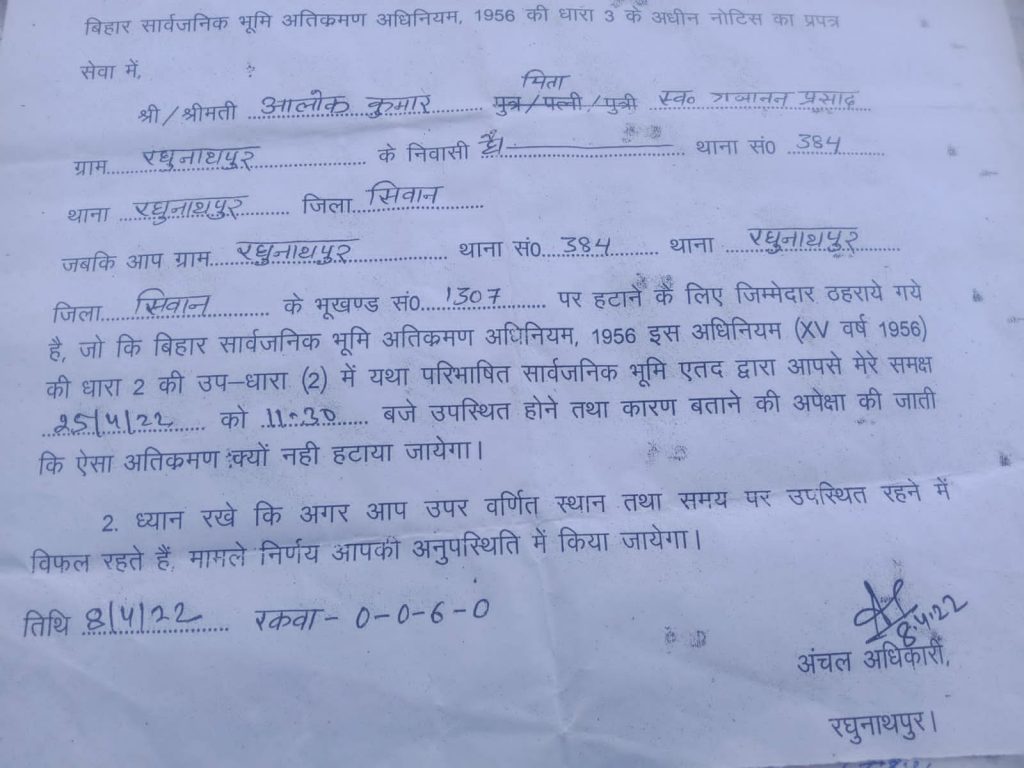 बिहार सार्वजनिक भूमि अतिकमण अधिनियम, 1956 की धारा 3 के अधीन नोटिस का प्रपत्र
सेवा में,
पिता
श्री/श्रीमती आलोक कुमार पुत्र/पत्नी/पुत्री स्व० गजानन प्रसाद
ग्राम रघुनाथपुर के निवासी है। थाना सं० 384
थाना रघुनाथपुर जिला सिवान
जबकि आप ग्राम रघुनाथपुर थाना सं०. 384 थाना रघुनाथपुर
जिला सिवान के भूखण्ड सं०. 1307 पर हटाने के लिए जिम्मेदार ठहराये गये
है, जो कि बिहार सार्वजनिक भूमि अतिकमण अधिनियम, 1956 इस अधिनियम (XV वर्ष 1956)
की धारा 2 की उप–धारा (2) में यथा परिभाषित सार्वजनिक भूमि एतद द्वारा आपसे मेरे समक्ष
25/4/22 को 11:30 बजे उपस्थित होने तथा कारण बताने की अपेक्षा की जाती
कि ऐसा अतिकमण क्यों नही हटाया जायेगा।
2. ध्यान रखे कि अगर आप उपर वर्णित स्थान तथा समय पर उपस्थित रहने में
विफल रहते हैं, मामले निर्णय आपकी अनुपस्थिति में किया जायेगा।
तिथि 8/4/22 रकवा – 0-0-6-0
8.4.22
अंचल अधिकारी,
रघुनाथपुर।